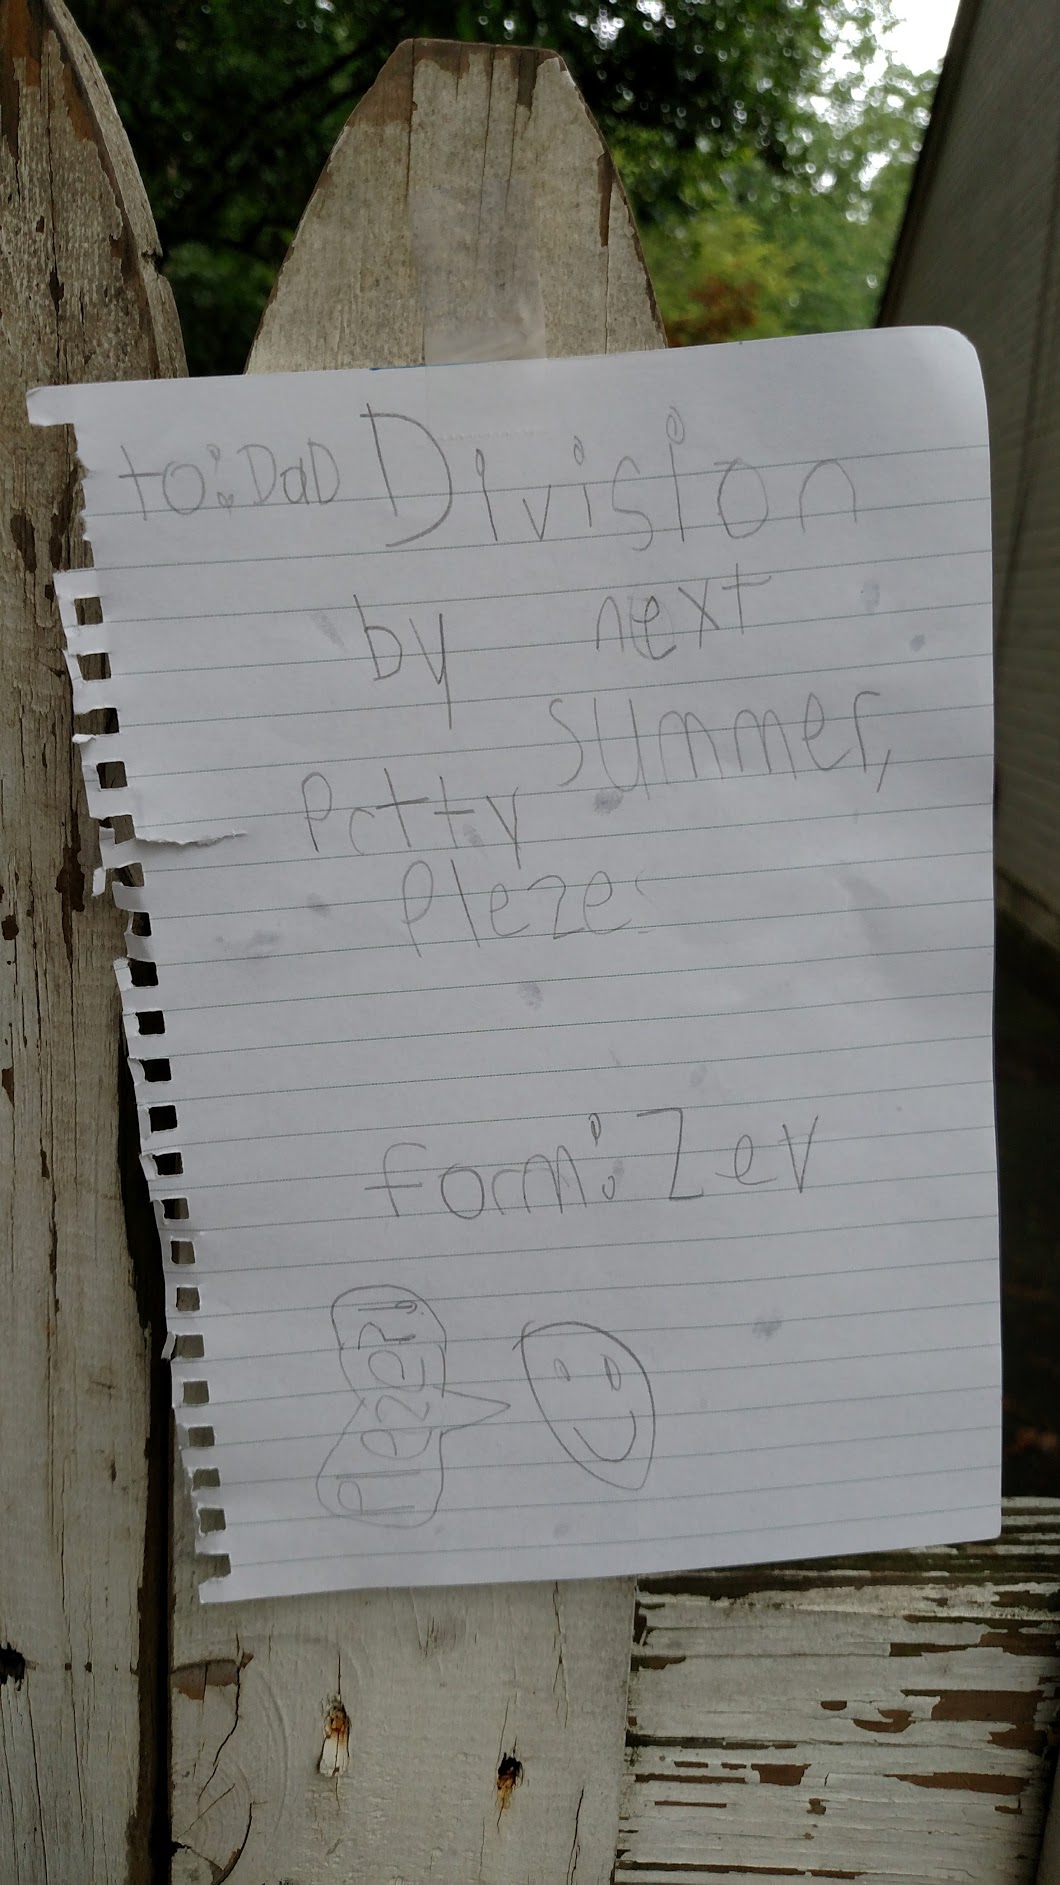 to: DaD Division
by next
summer,
Prtty
Pleze
form: Zev
Pleze?!